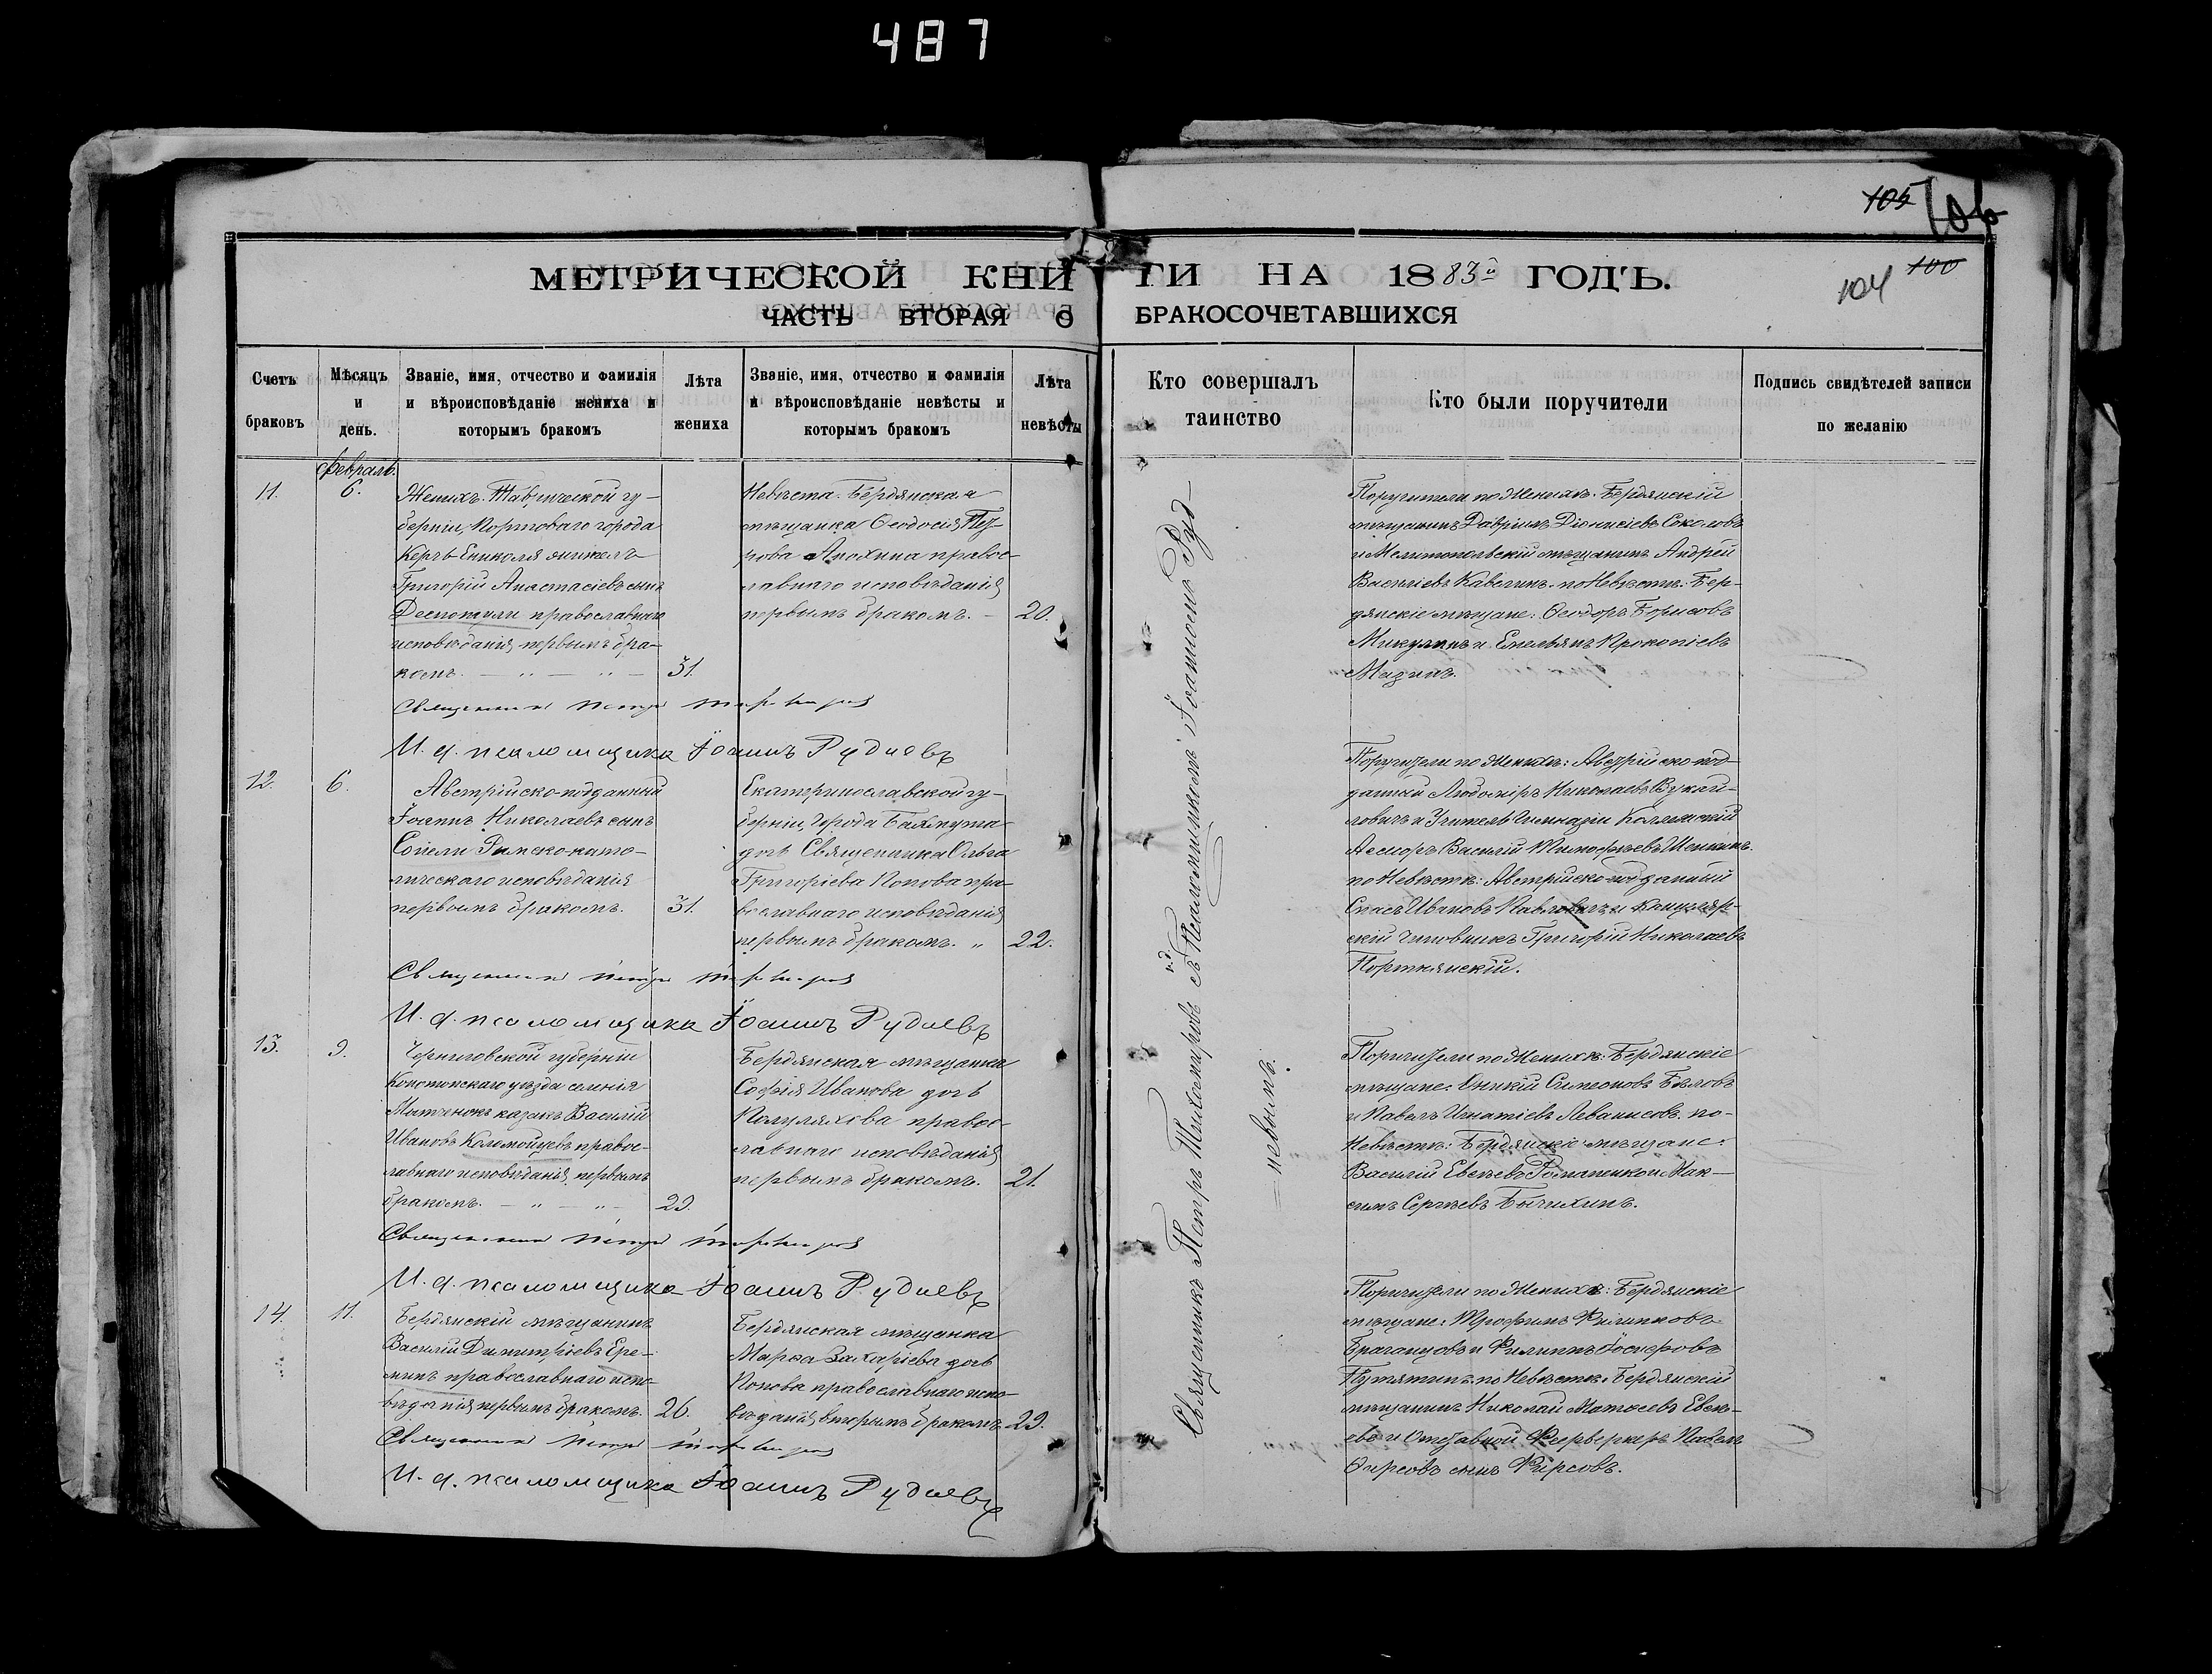 487
105
106
МЕТРИЧЕСКОЙ КНИГИ НА 1883й ГОДЪ.
104
100
ЧАСТЬ ВТОРАЯ О БРАКОСОЧЕТАВШИХСЯ
Счетъ браковъ
Мѣсяцъ и день.
Званіе, имя, отчество и фамилія и вѣроисповѣданіе жениха и которымъ бракомъ
Лѣта жениха
Званіе, имя, отчество и фамилія и вѣроисповѣданіе невѣсты и которымъ бракомъ
Лѣта невѣсты
Кто совершалъ таинство
Кто были поручители
Подпись свидѣтелей записи по желанію
Февраль.
11.
6.
Женихъ. Таврической гу-
берніи, Портоваго города
Керчь-Ениколя житель
Григорій Анастасіевъ сынъ
православнаго
исповѣданія, первымъ бра-
комъ.
31.
Невѣста. Бердянская
мѣщанка Ѳеодосія Пет-
рова Анохина правос-
лавнаго исповѣданія
первымъ бракомъ.
20.
Поручители по Женихѣ. Бердянскій
мѣщанинъ Гавріилъ Діонисіевъ Соколовъ
и Мелитопольскій мѣщанинъ Андрей
Василіевъ Кавелинъ. по Невѣстѣ: Бер-
дянскіе мѣщане: Ѳеодоръ Борисовъ
и Емельянъ Прокопіевъ
Мазинъ.
Священникъ Петръ Тихомировъ
И. д. псаломщика Іоаннъ Рудневъ
12.
6.
Австрійско-подданный
Іоаннъ Николаевъ сынъ
Римско-като-
лическаго исповѣданія
первымъ бракомъ.
31.
Екатеринославской гу-
берніи, города Бахмута
дочь Священника Ольга
Григоріева Попова пра-
вославнаго исповѣданія
первымъ бракомъ. "
22.
Поручители по Женихѣ: Австрійско-под-
данный Любоміръ Николаевъ
и Учитель Гимназіи Коллежскій
Асессоръ Василій Тимофеевъ
по Невѣстѣ: Австрійско-подданный
Спасъ Ивановъ Павловичъ и Канцеляр-
скій Чиновникъ Григорій Николаевъ
Портнянскій.
Священникъ Петръ Тихомировъ
И. д. псаломщика Іоаннъ Рудневъ
13.
9.
Черниговской губерніи
Конотопскаго уѣзда селенія
казакъ Василій
Ивановъ Коломойцевъ правос-
лавнаго исповѣданія, первымъ
бракомъ.
29.
Бердянская мѣщанка
Софія Иванова дочь
Полуляхова правос-
лавнаго исповѣданія
первымъ бракомъ.
21.
Поручители по Женихѣ: Бердянскіе
мѣщане: Оникій Симеоновъ Бѣловъ
и Павелъ Игнатіевъ Леванисовъ. по-
Невѣстѣ: Бердянскіе мѣщане:
Василій Романенко и Мак-
симъ Сергѣевъ Бычихинъ.
Священникъ Петръ Тихомировъ
И. д. псаломщика Іоаннъ Рудневъ
14.
11.
Бердянскій мѣщанинъ
Василій Димитріевъ Ере-
минъ православнаго испо-
вѣданія, первымъ бракомъ.
26.
Бердянская мѣщанка
Марѳа Захаріева дочь
Попова православнаго испо-
вѣданія, вторымъ бракомъ.
29.
Поручители по Женихѣ: Бердянскіе
мѣщане: Трофимъ Филипповъ
и Филиппъ Іосифовъ
Путятинъ. по Невѣстѣ: Бердянскій
мѣщанинъ Николай Матѳеевъ
и Отставной Фейерверкеръ Павелъ
Ѳирсовъ сынъ Фирсовъ.
Священникъ Петръ Тихомировъ
И. д. псаломщика Іоаннъ Рудневъ
Священникъ Петръ Тихомировъ съ и.д. Псаломщикомъ Іоанномъ Руд-
=невымъ.